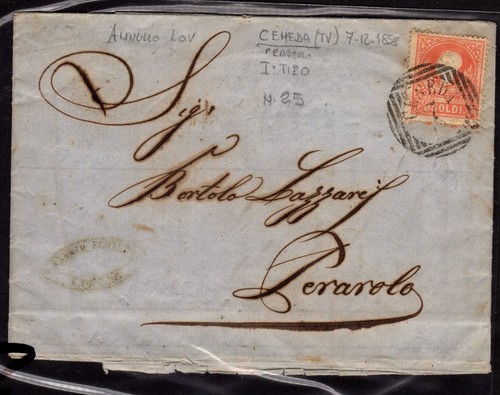 ANNULLO LOV
CENEDA (TV) 7-12-1858
I. TIPO
N. 25
SOLDI
Sigr
Bortolo Lazzaris
Perarolo